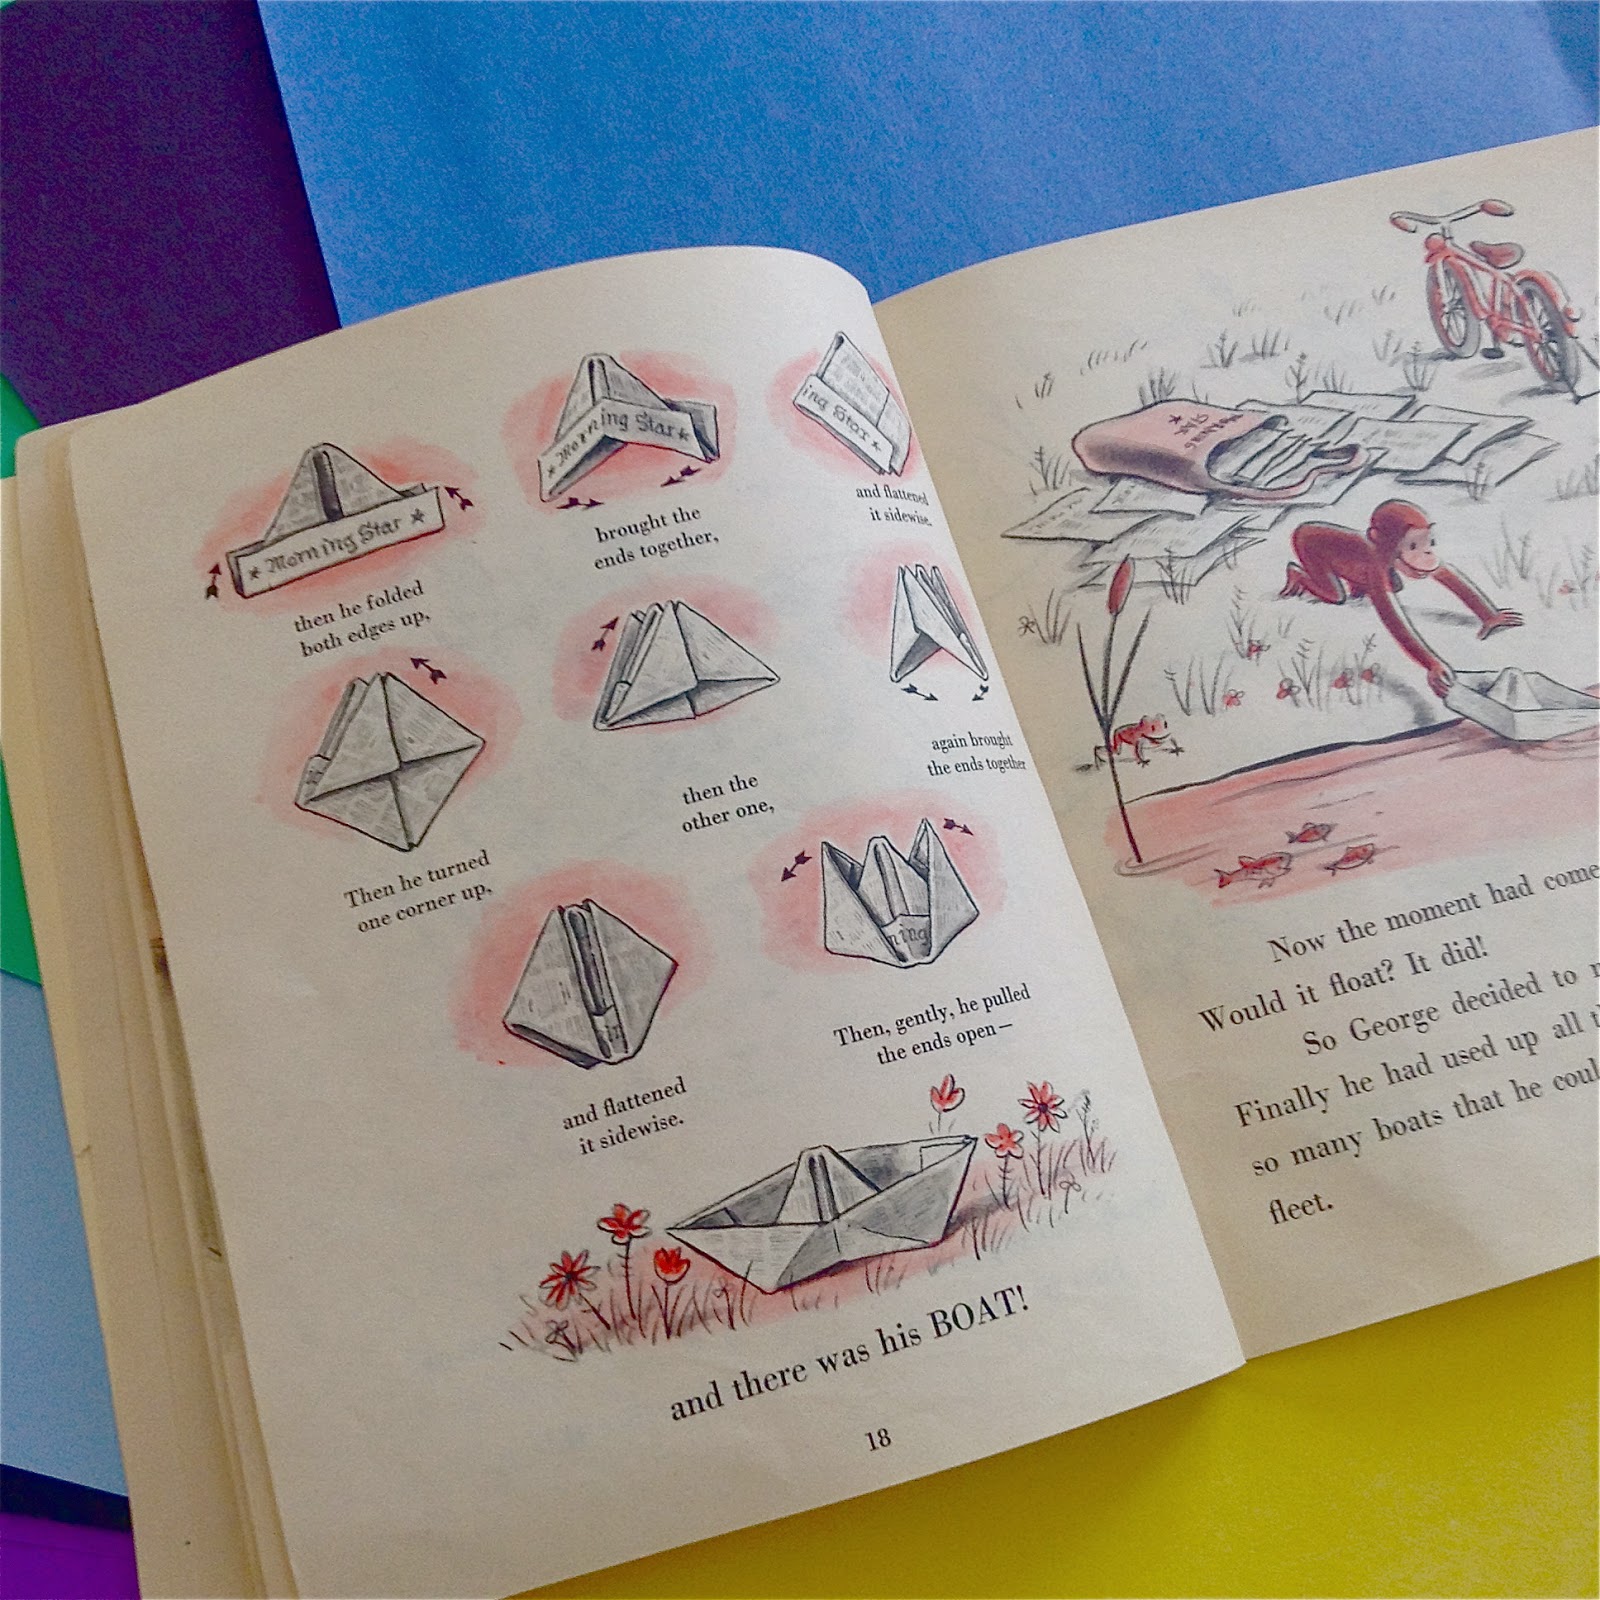 ★ Morning Star ★
then he folded
both edges up,
★ Morning Star ★
brought the
ends together,
ing Star ★
and flattened
it sidewise.
Then he turned
one corner up,
then the
other one,
again brought
the ends together
in
and flattened
it sidewise.
ning
Then, gently, he pulled
the ends open—
and there was his BOAT!
18
Now the moment had come
Would it float? It did!
So George decided to
Finally he had used up all
so many boats that he
fleet.